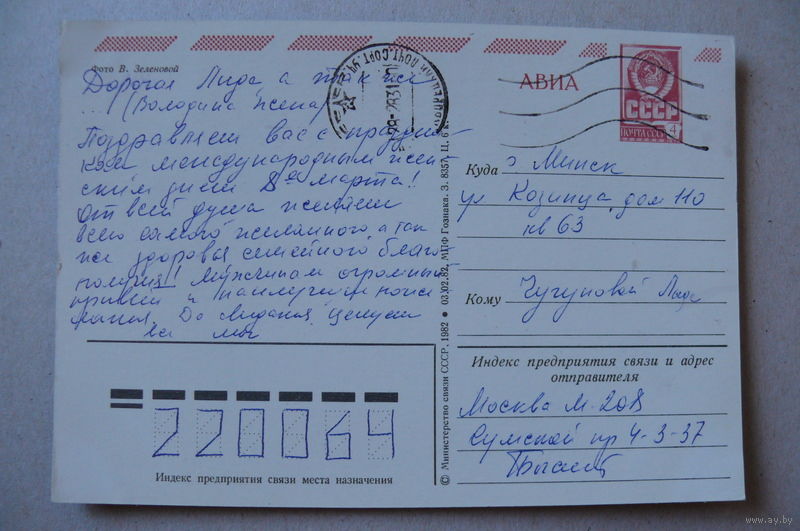 Фото В. Зеленовой
Дорогая Лида, а так же
... (Володина жена)
Поздравляем вас с праздни-
ком международным жен-
ским днем 8ое марта!
От всей души желаем
всего самого желанного, а так
же здоровья семейного благо-
получия! Мужчинам огромный
привет и наилучшие поже
лания. До свидания, целуем
все мы
АВИА
СССР
ПОЧТА СССР
4
Куда г. Минск
ул Козинца, дом 110
кв 63
Кому Чугуновой Лиде
Индекс предприятия связи и адрес
отправителя
Москва М-208
Сумской пр 4-3-37
220064
Индекс предприятия связи места назначения
© Министерство связи СССР, 1982 ● 03.02.82. МПФ Гознака. З. 8357. Ц. 6 к.
www.ay.by